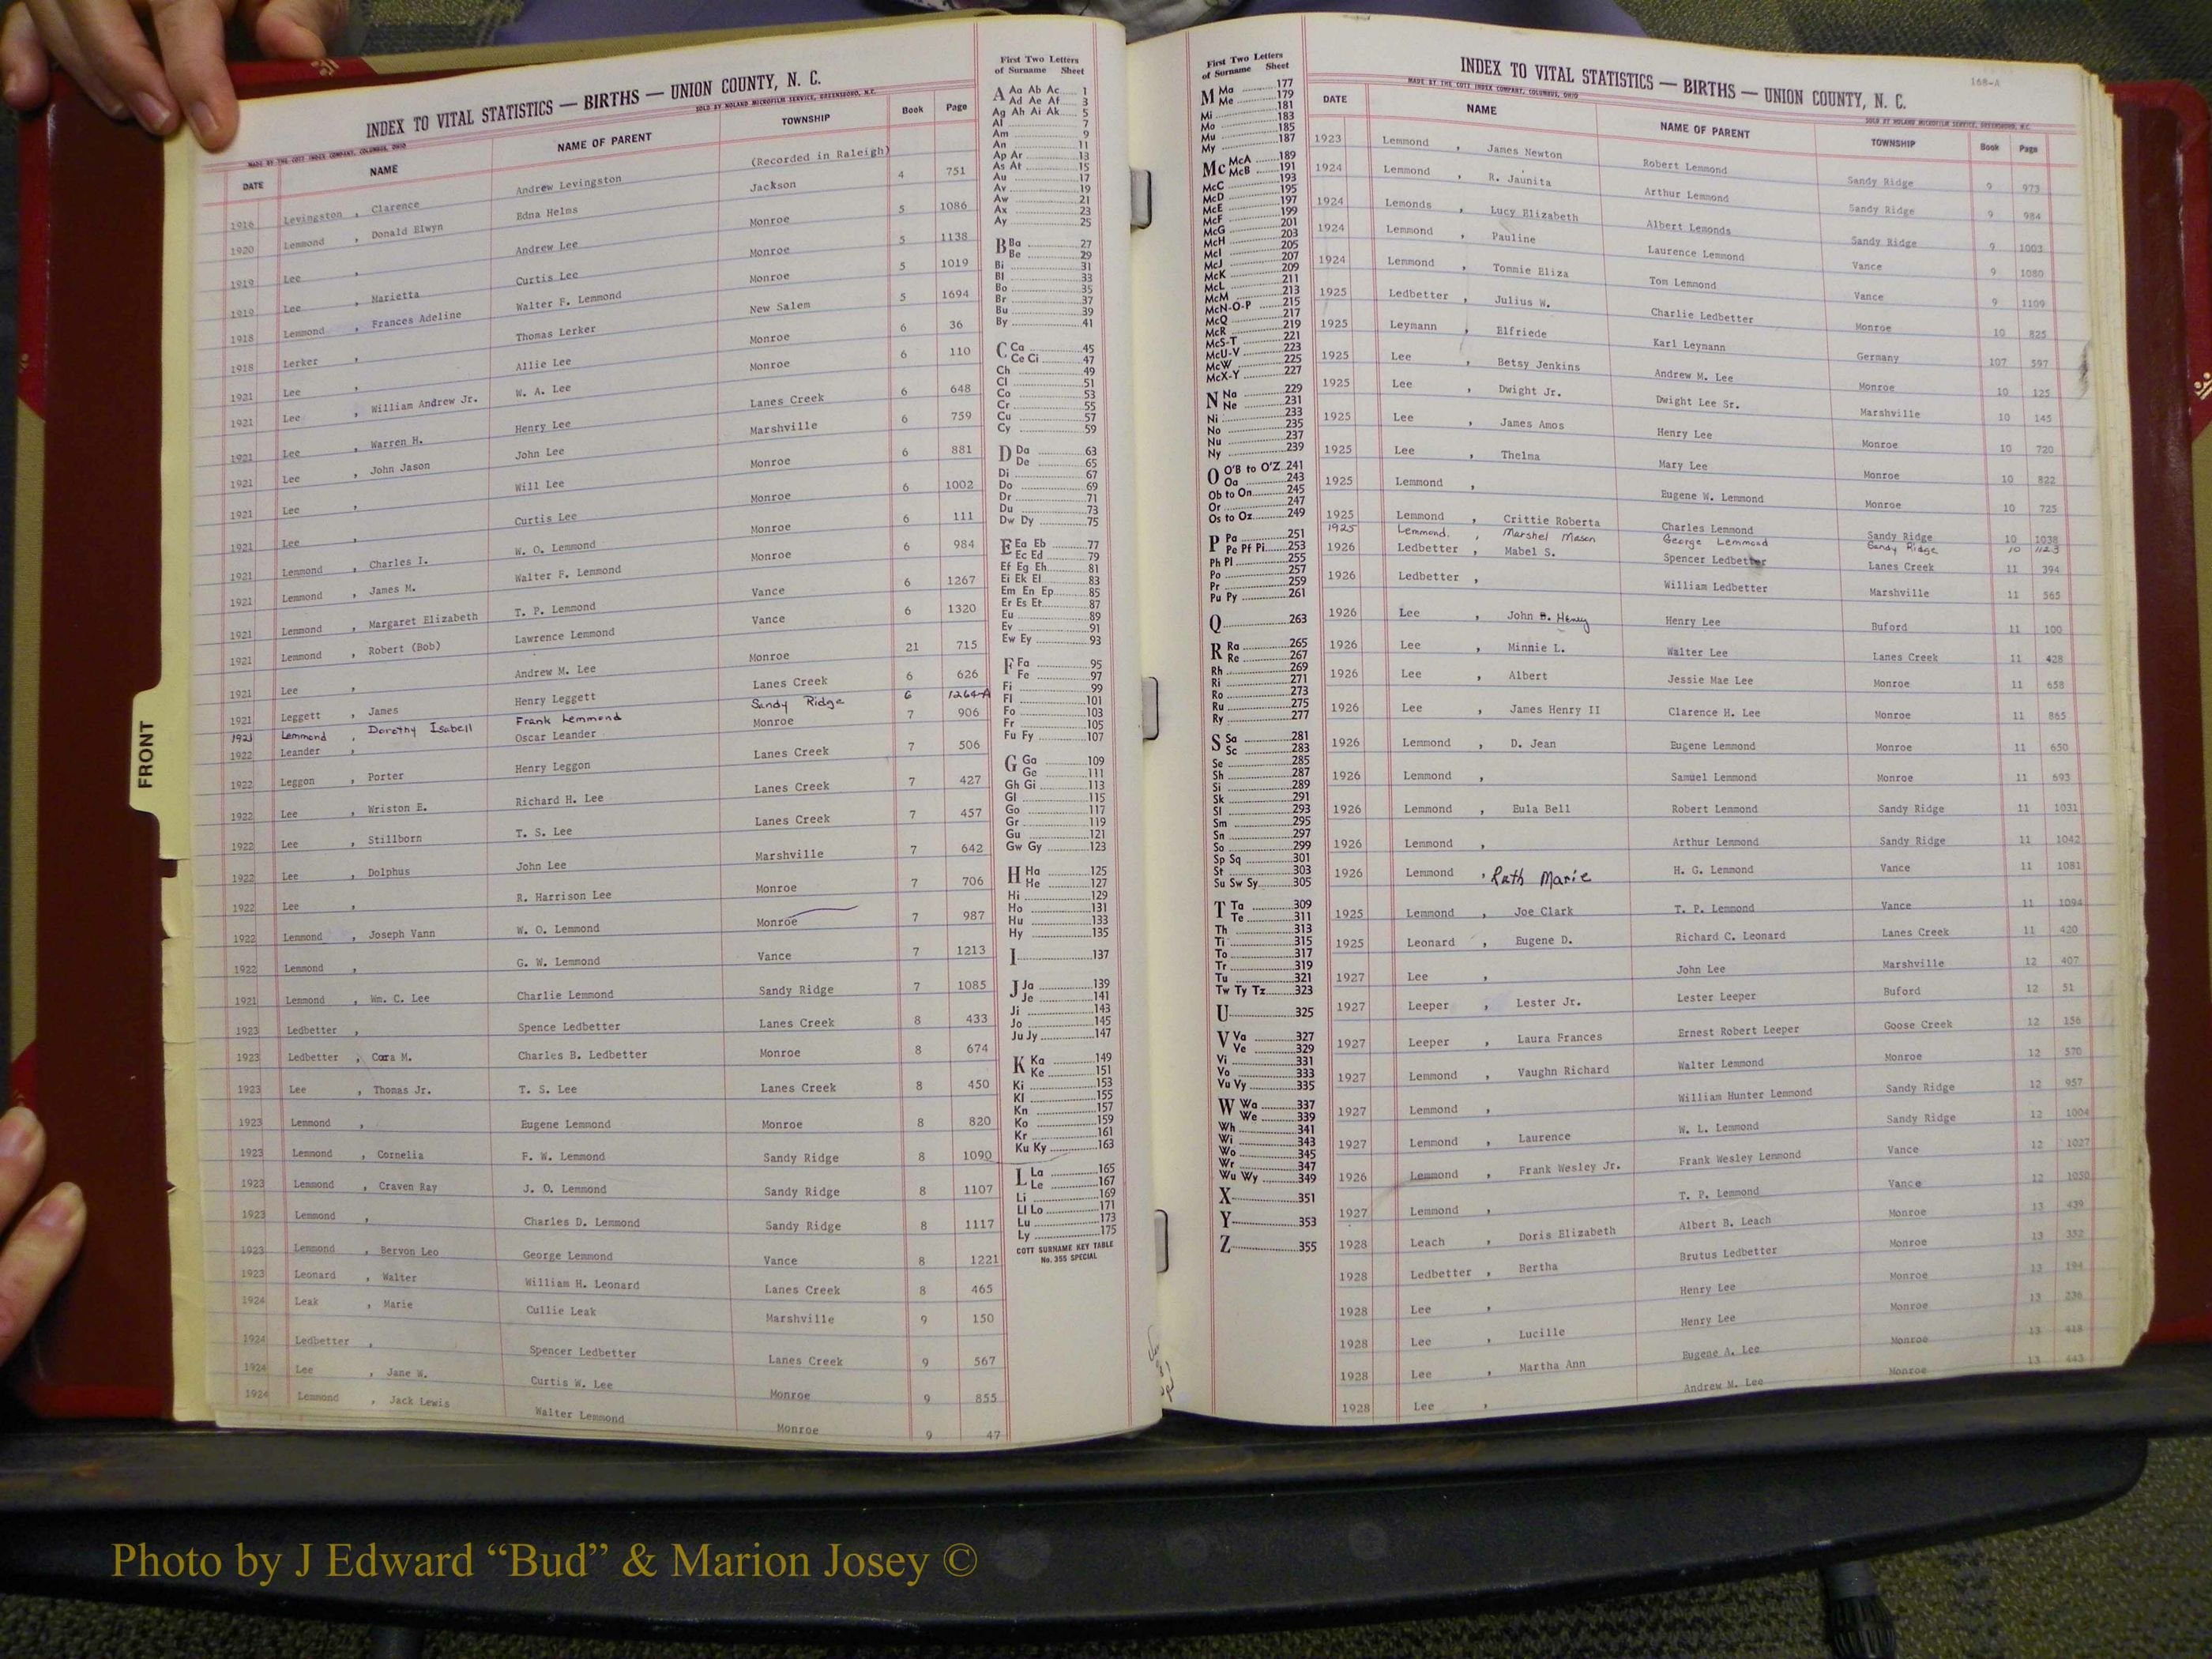 FRONT
INDEX TO VITAL STATISTICS — BIRTHS — UNION COUNTY, N. C.
MADE BY THE COTT INDEX COMPANY, COLUMBUS, OHIO SOLD BY NOLAND MICROFILM SERVICE, GREENSBORO, N.C.
DATE NAME NAME OF PARENT TOWNSHIP Book Page
1916 Levingston , Clarence Andrew Levingston (Recorded in Raleigh)
1920 Lemmond , Donald Elwyn Edna Helms Jackson 4 751
1919 Lee , Andrew Lee Monroe 5 1086
1919 Lee , Marietta Curtis Lee Monroe 5 1138
1918 Lemmond , Frances Adeline Walter F. Lemmond Monroe 5 1019
1918 Lerker , Thomas Lerker New Salem 5 1694
1921 Lee , Allie Lee Monroe 6 36
1921 Lee , William Andrew Jr. W. A. Lee Monroe 6 110
1921 Lee , Warren H. Henry Lee Lanes Creek 6 648
1921 Lee , John Jason John Lee Marshville 6 759
1921 Lee , Will Lee Monroe 6 881
1921 Lee , Curtis Lee Monroe 6 1002
1921 Lemmond , Charles I. W. O. Lemmond Monroe 6 111
1921 Lemmond , James M. Walter F. Lemmond Monroe 6 984
1921 Lemmond , Margaret Elizabeth T. P. Lemmond Vance 6 1267
1921 Lemmond , Robert (Bob) Lawrence Lemmond Vance 6 1320
1921 Lee , Andrew M. Lee Monroe 21 715
1921 Leggett , James Henry Leggett Lanes Creek 6 626
1921 Lemmond , Dorothy Isabell Frank Lemmond Sandy Ridge 6 1264-A
1922 Leander , Oscar Leander Monroe 7 906
1922 Leggon , Porter Henry Leggon Lanes Creek 7 506
1922 Lee , Wriston E. Richard H. Lee Lanes Creek 7 427
1922 Lee , Stillborn T. S. Lee Lanes Creek 7 457
1922 Lee , Dolphus John Lee Marshville 7 642
1922 Lee , R. Harrison Lee Monroe 7 706
1922 Lemmond , Joseph Vann W. O. Lemmond Monroe 7 987
1922 Lemmond , G. W. Lemmond Vance 7 1213
1921 Lemmond , Wm. C. Lee Charlie Lemmond Sandy Ridge 7 1085
1923 Ledbetter , Spence Ledbetter Lanes Creek 8 433
1923 Ledbetter , Cora M. Charles B. Ledbetter Monroe 8 674
1923 Lee , Thomas Jr. T. S. Lee Lanes Creek 8 450
1923 Lemmond , Eugene Lemmond Monroe 8 820
1923 Lemmond , Cornelia F. W. Lemmond Sandy Ridge 8 1090
1923 Lemmond , Craven Ray J. O. Lemmond Sandy Ridge 8 1107
1923 Lemmond , Charles D. Lemmond Sandy Ridge 8 1117
1923 Lemmond , Bervon Leo George Lemmond Vance 8 1221
1923 Leonard , Walter William H. Leonard Lanes Creek 8 465
1924 Leak , Marie Cullie Leak Marshville 9 150
1924 Ledbetter , Spencer Ledbetter Lanes Creek 9 567
1924 Lee , Jane W. Curtis W. Lee Monroe 9 855
1924 Lemmond , Jack Lewis Walter Lemmond Monroe 9 47
First Two Letters
of Surname Sheet
A Aa Ab Ac 1
Ad Ae Af 3
Ag Ah Ai Ak 5
Al 7
Am 9
An 11
Ap Ar 13
As At 15
Au 17
Av 19
Aw 21
Ax 23
Ay 25
B Ba 27
Be 29
Bi 31
Bl 33
Bo 35
Br 37
Bu 39
By 41
C Ca 45
Ce Ci 47
Ch 49
Cl 51
Co 53
Cr 55
Cu 57
Cy 59
D Da 63
De 65
Di 67
Do 69
Dr 71
Du 73
Dw Dy 75
E Ea Eb 77
Ec Ed 79
Ef Eg Eh 81
Ei Ek El 83
Em En Ep 85
Er Es Et 87
Eu 89
Ev 91
Ew Ey 93
F Fa 95
Fe 97
Fi 99
Fl 101
Fo 103
Fr 105
Fu Fy 107
G Ga 109
Ge 111
Gh Gi 113
Gl 115
Go 117
Gr 119
Gu 121
Gw Gy 123
H Ha 125
He 127
Hi 129
Ho 131
Hu 133
Hy 135
I 137
J Ja 139
Je 141
Ji 143
Jo 145
Ju Jy 147
K Ka 149
Ke 151
Ki 153
Kl 155
Kn 157
Ko 159
Kr 161
Ku Ky 163
L La 165
Le 167
Li 169
Ll Lo 171
Lu 173
Ly 175
COTT SURNAME KEY TABLE
No. 355 SPECIAL
First Two Letters
of Surname Sheet
M Ma 177
Me 179
Mi 181
Mo 183
Mu 185
My 187
Mc McA 189
McB 191
McC 193
McD 195
McE 197
McF 199
McG 201
McH 203
McI 205
McJ 207
McK 209
McL 211
McM 213
McN-O-P 215
McQ 217
McR 219
McS-T 221
McU-V 223
McW 225
McX-Y 227
N Na 229
Ne 231
Ni 233
No 235
Nu 237
Ny 239
O O'B to O'Z 241
Oa 243
Ob to On 245
Or 247
Os to Oz 249
P Pa 251
Pe Pf Pi 253
Ph Pl 255
Po 257
Pr 259
Pu Py 261
Q 263
R Ra 265
Re 267
Rh 269
Ri 271
Ro 273
Ru 275
Ry 277
S Sa 281
Sc 283
Se 285
Sh 287
Si 289
Sk 291
Sl 293
Sm 295
Sn 297
So 299
Sp Sq 301
St 303
Su Sw Sy 305
T Ta 309
Te 311
Th 313
Ti 315
To 317
Tr 319
Tu 321
Tw Ty Tz 323
U 325
V Va 327
Ve 329
Vi 331
Vo 333
Vu Vy 335
W Wa 337
We 339
Wh 341
Wi 343
Wo 345
Wr 347
Wu Wy 349
X 351
Y 353
Z 355
168-A
INDEX TO VITAL STATISTICS — BIRTHS — UNION COUNTY, N. C.
MADE BY THE COTT INDEX COMPANY, COLUMBUS, OHIO SOLD BY NOLAND MICROFILM SERVICE, GREENSBORO, N.C.
DATE NAME NAME OF PARENT TOWNSHIP Book Page
1923 Lemmond , James Newton Robert Lemmond Sandy Ridge 9 973
1924 Lemmond , R. Jaunita Arthur Lemmond Sandy Ridge 9 984
1924 Lemonds , Lucy Elizabeth Albert Lemonds Sandy Ridge 9 1003
1924 Lemmond , Pauline Laurence Lemmond Vance 9 1080
1924 Lemmond , Tommie Eliza Tom Lemmond Vance 9 1109
1925 Ledbetter , Julius W. Charlie Ledbetter Monroe 10 825
1925 Leymann , Elfriede Karl Leymann Germany 107 597
1925 Lee , Betsy Jenkins Andrew M. Lee Monroe 10 125
1925 Lee , Dwight Jr. Dwight Lee Sr. Marshville 10 145
1925 Lee , James Amos Henry Lee Monroe 10 720
1925 Lee , Thelma Mary Lee Monroe 10 822
1925 Lemmond , Eugene W. Lemmond Monroe 10 725
1925 Lemmond , Crittie Roberta Charles Lemmond Sandy Ridge 10 1038
1925 Lemmond. , Marshel Mason George Lemmond Sandy Ridge 10 1123
1926 Ledbetter , Mabel S. Spencer Ledbetter Lanes Creek 11 394
1926 Ledbetter , William Ledbetter Marshville 11 565
1926 Lee , John B. Henry Henry Lee Buford 11 100
1926 Lee , Minnie L. Walter Lee Lanes Creek 11 428
1926 Lee , Albert Jessie Mae Lee Monroe 11 658
1926 Lee , James Henry II Clarence H. Lee Monroe 11 865
1926 Lemmond , D. Jean Eugene Lemmond Monroe 11 650
1926 Lemmond , Samuel Lemmond Monroe 11 693
1926 Lemmond , Eula Bell Robert Lemmond Sandy Ridge 11 1031
1926 Lemmond , Arthur Lemmond Sandy Ridge 11 1042
1926 Lemmond , Ruth Marie H. G. Lemmond Vance 11 1081
1925 Lemmond , Joe Clark T. P. Lemmond Vance 11 1094
1925 Leonard , Eugene D. Richard C. Leonard Lanes Creek 11 420
1927 Lee , John Lee Marshville 12 407
1927 Leeper , Lester Jr. Lester Leeper Buford 12 51
1927 Leeper , Laura Frances Ernest Robert Leeper Goose Creek 12 156
1927 Lemmond , Vaughn Richard Walter Lemmond Monroe 12 570
1927 Lemmond , William Hunter Lemmond Sandy Ridge 12 957
1927 Lemmond , Laurence W. L. Lemmond Sandy Ridge 12 1004
1926 Lemmond , Frank Wesley Jr. Frank Wesley Lemmond Vance 12 1027
1927 Lemmond , T. P. Lemmond Vance 12 1050
1928 Leach , Doris Elizabeth Albert B. Leach Monroe 13 439
1928 Ledbetter , Bertha Brutus Ledbetter Monroe 13 352
1928 Lee , Henry Lee Monroe 13 194
1928 Lee , Lucille Henry Lee Monroe 13 236
1928 Lee , Martha Ann Eugene A. Lee Monroe 13 418
1928 Lee , Andrew M. Lee Monroe 13 443
Photo by J Edward “Bud” & Marion Josey ©